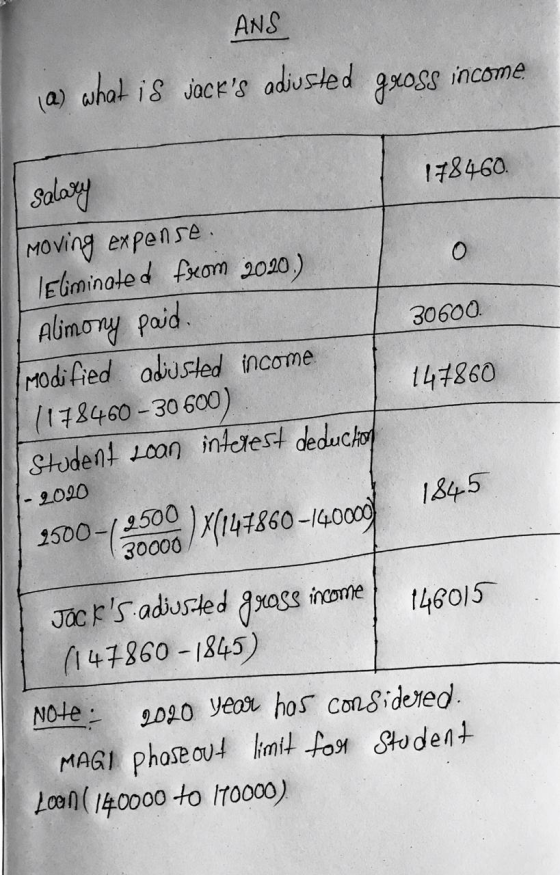 ANS
(a) what is jack's adjusted gross income
Salary 178460.
Moving expense. 0
(Eliminated from 2020.)
Alimony paid. 30600.
Modified adjusted income 147860
(178460-30600)
Student Loan interest deduction
- 2020 1845
2500-(2500/30000)X(147860-140000)
Jack's adjusted gross income 146015
(147860-1845)
Note:- 2020 year has considered.
MAGI phaseout limit for Student
Loan(140000 to 170000)